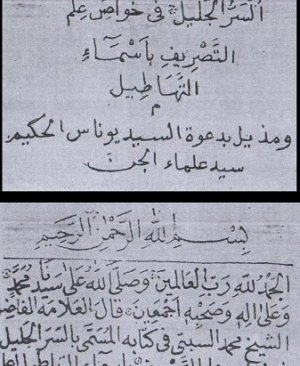 السر الجليل في خواص علم
التصريف بأسماء
التهاطيل
م
ومذيل بدعوة السيد يوناس الحكيم
سيد علماء الجن
بسم الله الرحمن الرحيم
الحمد لله رب العالمين وصلى الله على سيدنا محمد
وعلى اله وصحبه اجمعين قال العلامة الفاضل
الشيخ محمد السبتي في كتابه المسمى بالسر الجليل